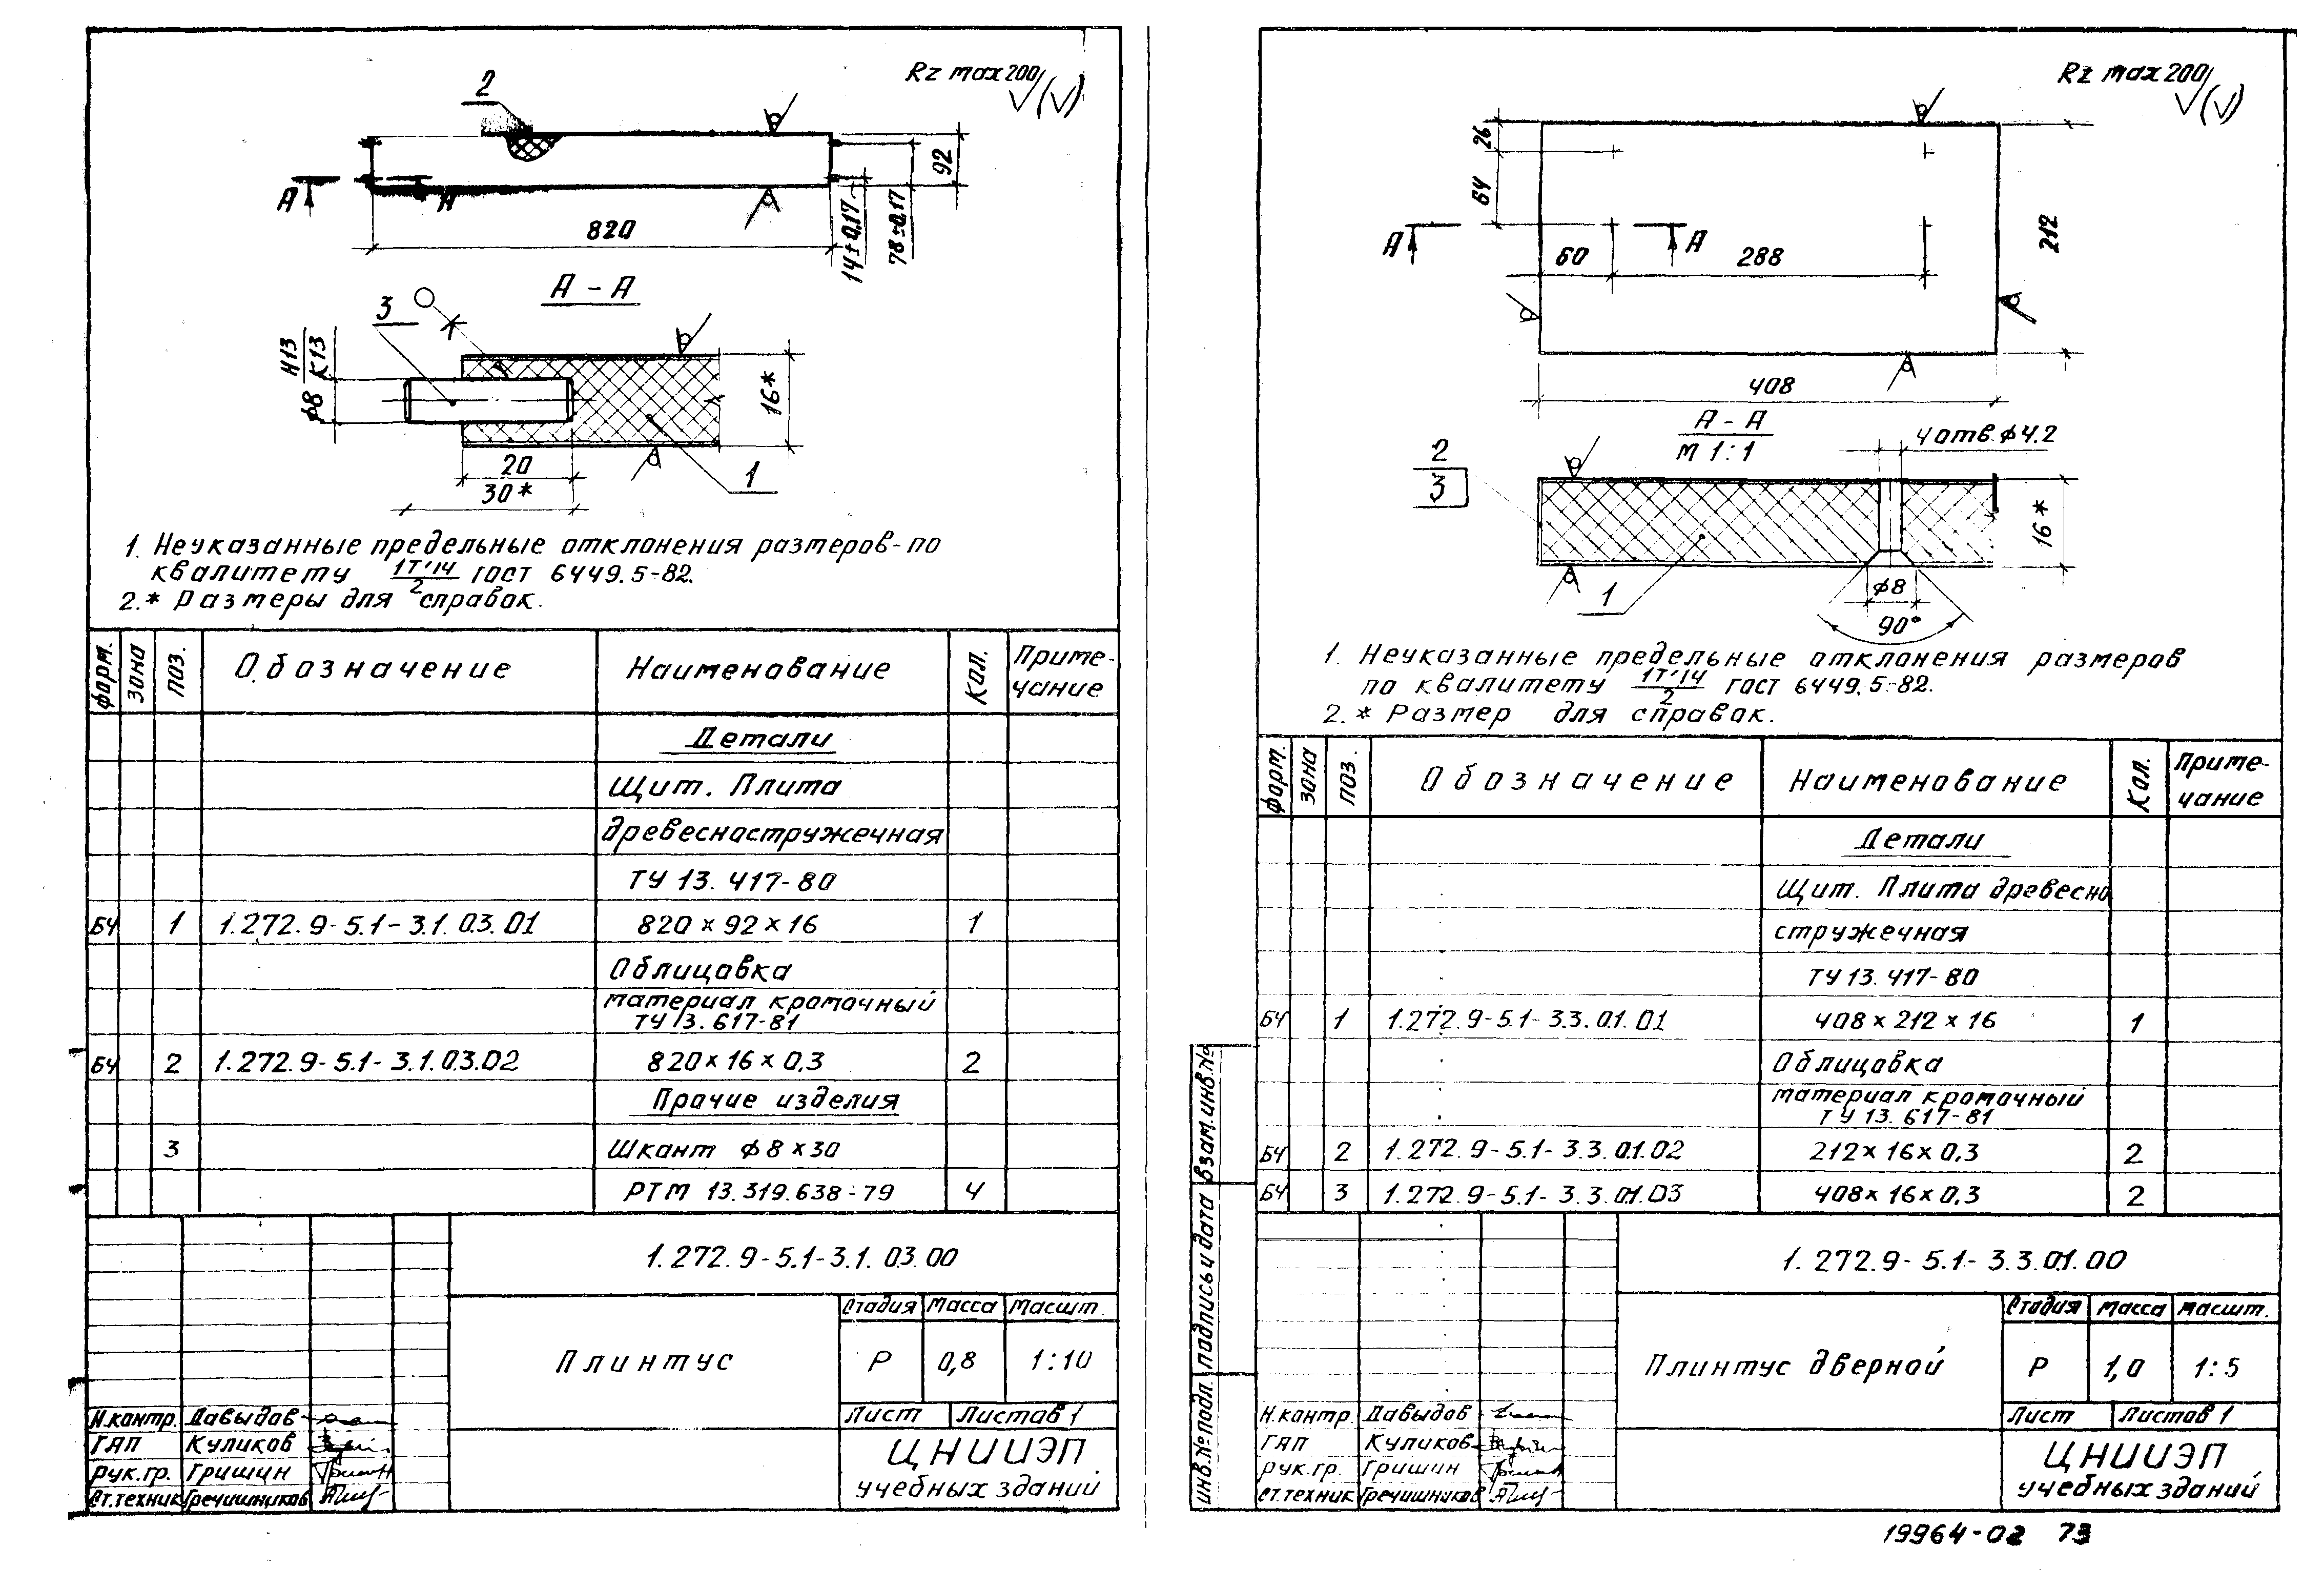 Rz max 200
2
A
A
820
92
14±0,17
78±0,17
A - A
3
ϕ8 H13/K13
16*
20
30*
1
1. Неуказанные предельные отклонения размеров - по
квалитету IT'14/2 ГОСТ 6449.5-82.
2.* Размеры для справок.
форм. зона поз. Обозначение Наименование Кол. Приме-
чание
Детали
Щит. Плита
древесностружечная
ТУ 13.417-80
БЧ 1 1.272.9-5.1-3.1.03.01 820×92×16 1
Облицовка
материал кромочный
ТУ 13.617-81
БЧ 2 1.272.9-5.1-3.1.03.02 820×16×0,3 2
Прочие изделия
3 Шкант ϕ8×30
РТМ 13.319.638-79 4
1.272.9-5.1-3.1.03.00
Плинтус
Стадия Масса Масшт.
Р 0,8 1:10
Лист Листов 1
Н.контр. Давыдов
ГАП Куликов
Рук.гр. Гришин
Ст.техник Гречишников
ЦНИИЭП
учебных зданий
Rz max 200
26
64
A A
60 288
212
408
A - A
М 1:1
4 отв. ϕ4.2
2
3
16*
1
ϕ8
90°
1. Неуказанные предельные отклонения размеров
по квалитету IT'14/2 ГОСТ 6449.5-82.
2.* Размер для справок.
форм. зона поз. Обозначение Наименование Кол. Приме-
чание
Детали
Щит. Плита древесно
стружечная
ТУ 13.417-80
БЧ 1 1.272.9-5.1-3.3.01.01 408×212×16 1
Облицовка
материал кромочный
ТУ 13.617-81
БЧ 2 1.272.9-5.1-3.3.01.02 212×16×0,3 2
БЧ 3 1.272.9-5.1-3.3.01.03 408×16×0,3 2
1.272.9-5.1-3.3.01.00
Плинтус дверной
Стадия Масса Масшт.
Р 1,0 1:5
Лист Листов 1
Н.контр. Давыдов
ГАП Куликов
Рук.гр. Гришин
Ст.техник Гречишников
ЦНИИЭП
учебных зданий
Инв.№ подл. Подпись и дата Взам.инв.№
19964-02 73